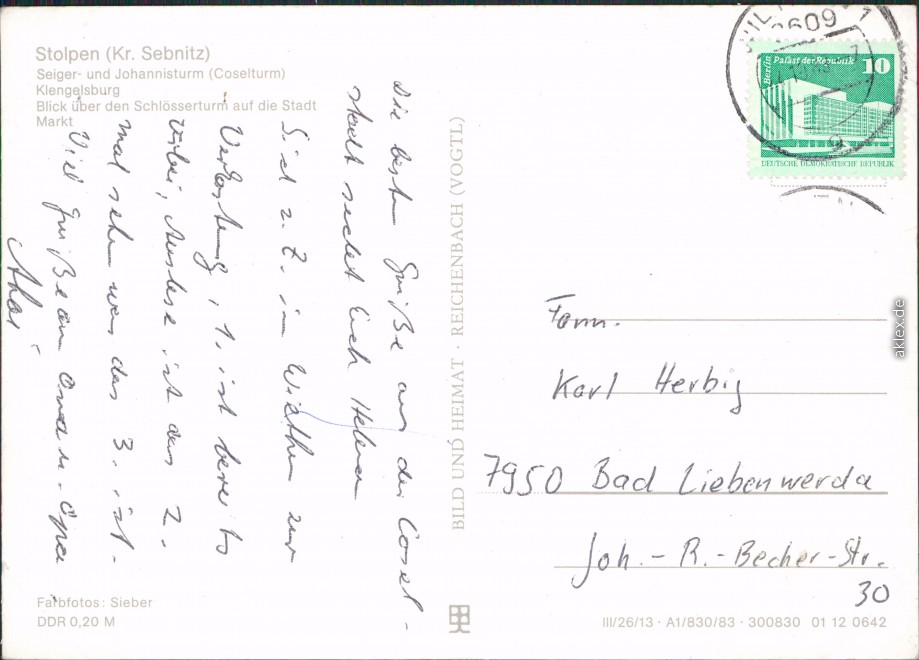 Stolpen (Kr. Sebnitz)
Seiger- und Johannisturm (Coselturm)
Klengelsburg
Blick über den Schlösserturm auf die Stadt
Markt
Die besten Grüße aus der Cosel-
stadt sendet Euch
Sind z. Z. in Wilthen zur
1. ist bereits
vorbei, ist das 2.
mal sehen was das 3. ist.
Viele Grüße an Oma u. Opa
BILD UND HEIMAT · REICHENBACH (VOGTL)
2609
1
Berlin Palast der Republik
10
DEUTSCHE DEMOKRATISCHE REPUBLIK
Fam.
Karl Herbig
7950 Bad Liebenwerda
Joh.-R.-Becher-Str.
30
Farbfotos: Sieber
DDR 0,20 M
III/26/13 · A1/830/83 · 300830 01 12 0642
aklex.de